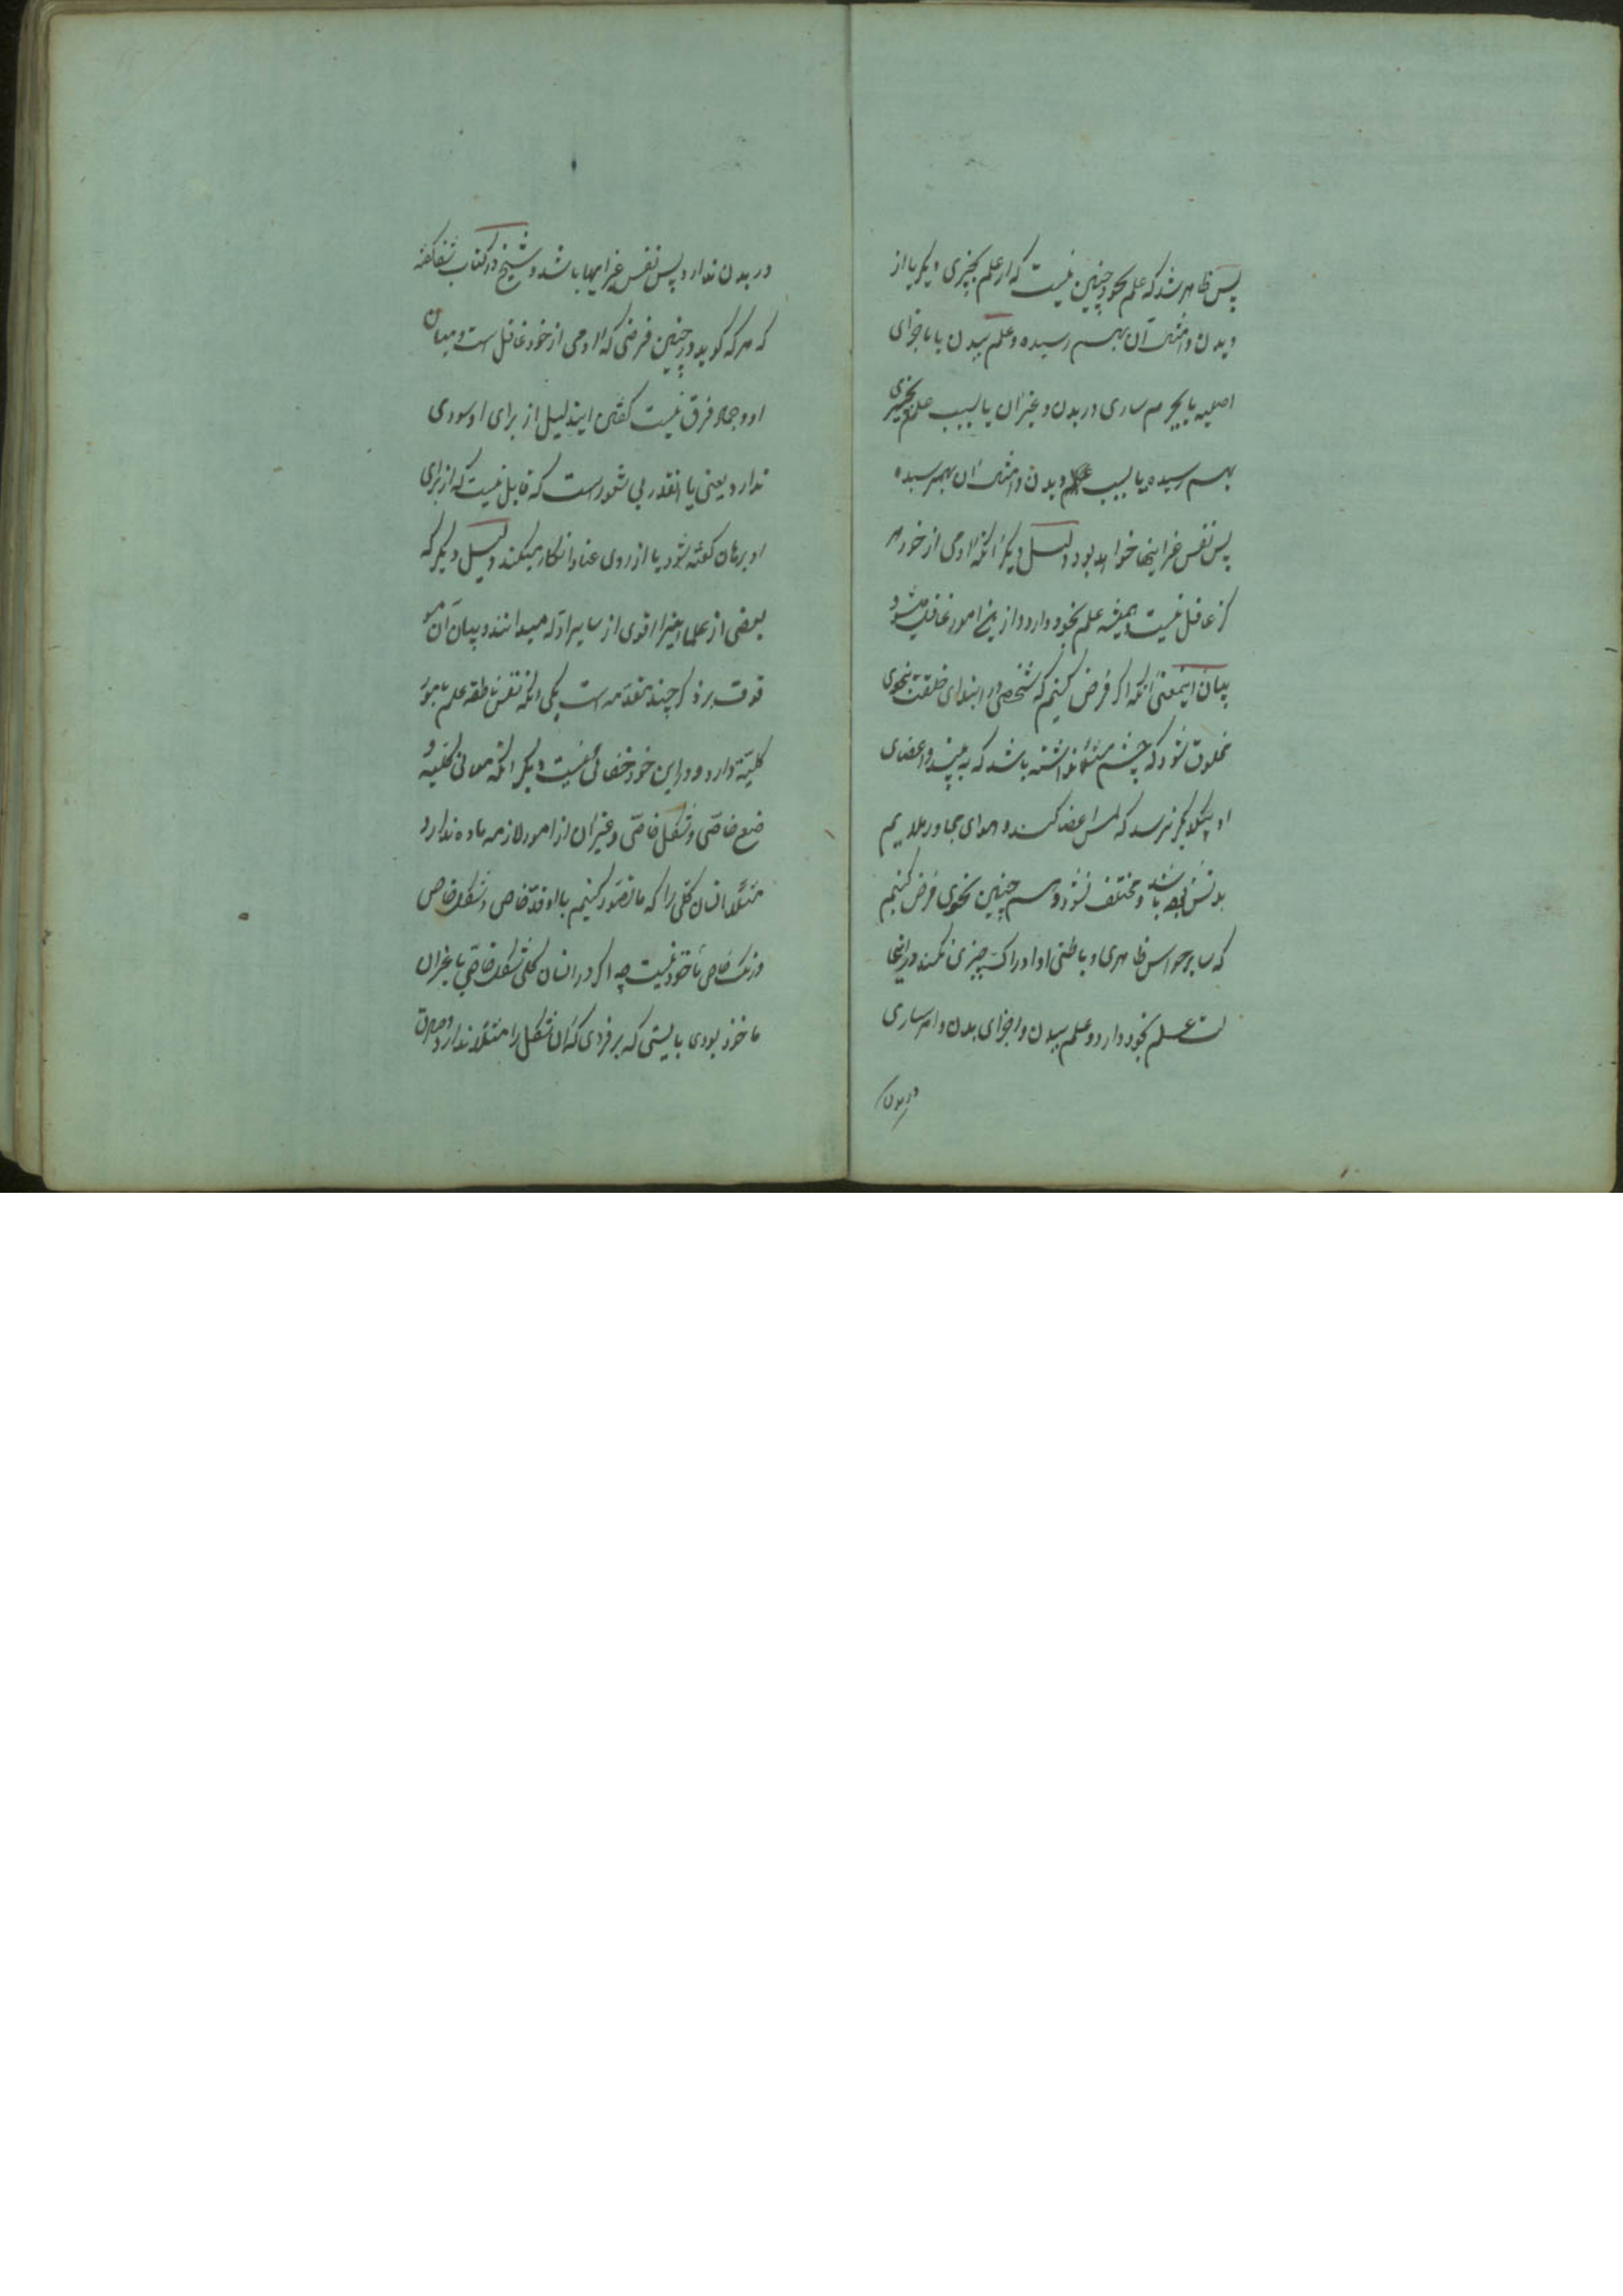 پس ظاهر شد که علم بخود چنین نیست که از علم بچیزی دیگر یا از
دیدن و امثال آن بهم رسیده و علم ببدن یا باجزای
اصلیه یا بجرم ساری در بدن و غیر آن یا بسبب علم بچیزی
بهم رسیده یا بسبب علم دیدن و امثال آن بهمرسیده
پس نفس غیر اینها خواهد بود دلیل دیگر آنکه آدمی از خود هر
کز غافل نیست و همیشه علم بخود دارد و از این امور غافل میشود
بیان اینمعنی آنکه اگر فرض کنیم که شخصی در ابتدای خلقت بنحوی
مخلوق شود که چشم مثلا نداشته باشد که به بیند و اعضای
او بیکدیگر نرسد که لمس اعضا کند و هوای مجاور ملایم
بدنش باشد و مختلف نشود و هم چنین بنحوی فرض کنیم
که سایر حواس ظاهری و باطنی او ادراک چیزی نکند در اینحا
لت علم بخود دارد و علم ببدن و اجزای بدن و امر ساری
در بدن
در بدن ندارد پس نفس غیر اینها باشد و شیخ در کتاب شفا گفته
که هر که گوید در چنین فرضی که آدمی از خود غافل است و میان
او و جماد فرق نیست گفتن ایندلیل از برای او سودی
ندارد یعنی یا آنقدر بی شعور است که قابل نیست که از برای
او برهان گفته شود یا از روی عناد انکار میکند دلیل دیگر که
بعضی از علما اینرا اقوی از سایر ادله میدانند و بیان آن مو
قوف بر ذکر چند مقدمه است یکی آنکه نفس ناطقه علم بامور
کلیه دارد و در این خود خفائی نیست دیگر آنکه معانی کلیه و
ضع خاصی و شکل خاصی و غیر آن از امور لازمه ماده ندارد
مثلا انسان کلی را که ما تصور کنیم با او قد خاص و شکل خاص
و رنگ خاص مأخوذ نیست چه اگر در انسان کلی شکل خاصی یا غیر آن
ماخوذ بودی بایستی که بر فردی که آن شکل را مثلا ندارد صدق